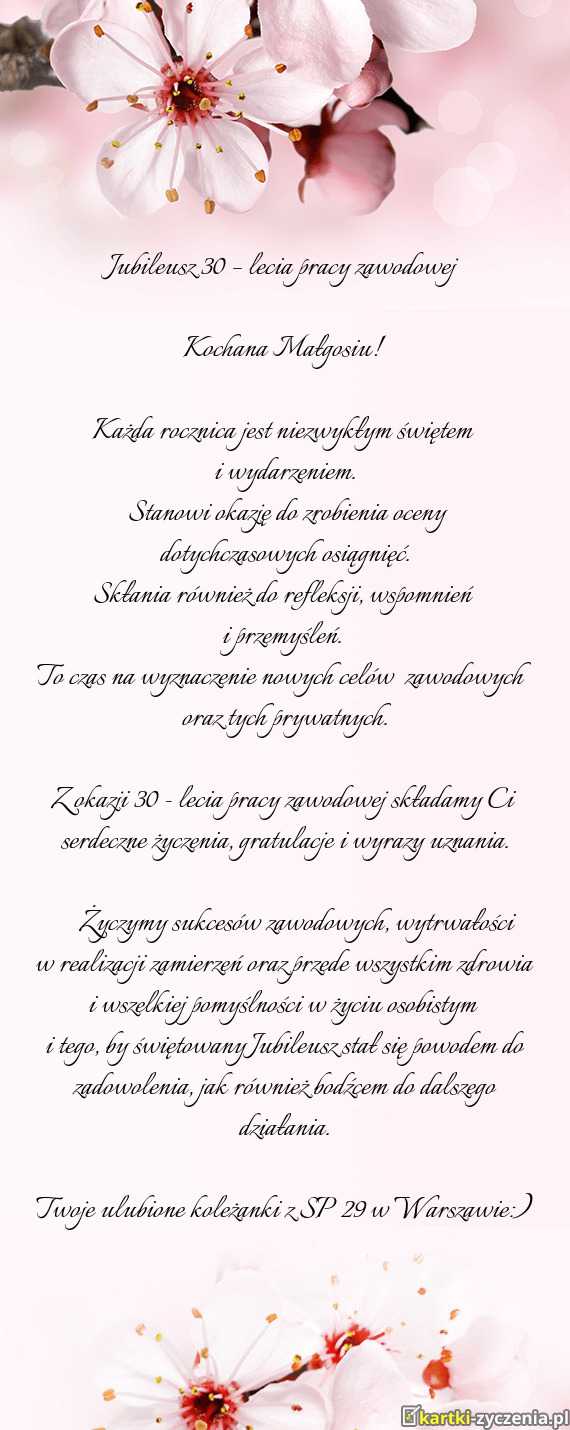 Jubileusz 30 – lecia pracy zawodowej
Kochana Małgosiu!
Każda rocznica jest niezwykłym świętem
i wydarzeniem.
Stanowi okazję do zrobienia oceny
dotychczasowych osiągnięć.
Skłania również do refleksji, wspomnień
i przemyśleń.
To czas na wyznaczenie nowych celów zawodowych
oraz tych prywatnych.
Z okazji 30 - lecia pracy zawodowej składamy Ci
serdeczne życzenia, gratulacje i wyrazy uznania.
Życzymy sukcesów zawodowych, wytrwałości
w realizacji zamierzeń oraz przede wszystkim zdrowia
i wszelkiej pomyślności w życiu osobistym
i tego, by świętowany Jubileusz stał się powodem do
zadowolenia, jak również bodźcem do dalszego
działania.
Twoje ulubione koleżanki z SP 29 w Warszawie:)
kartki-zyczenia.pl